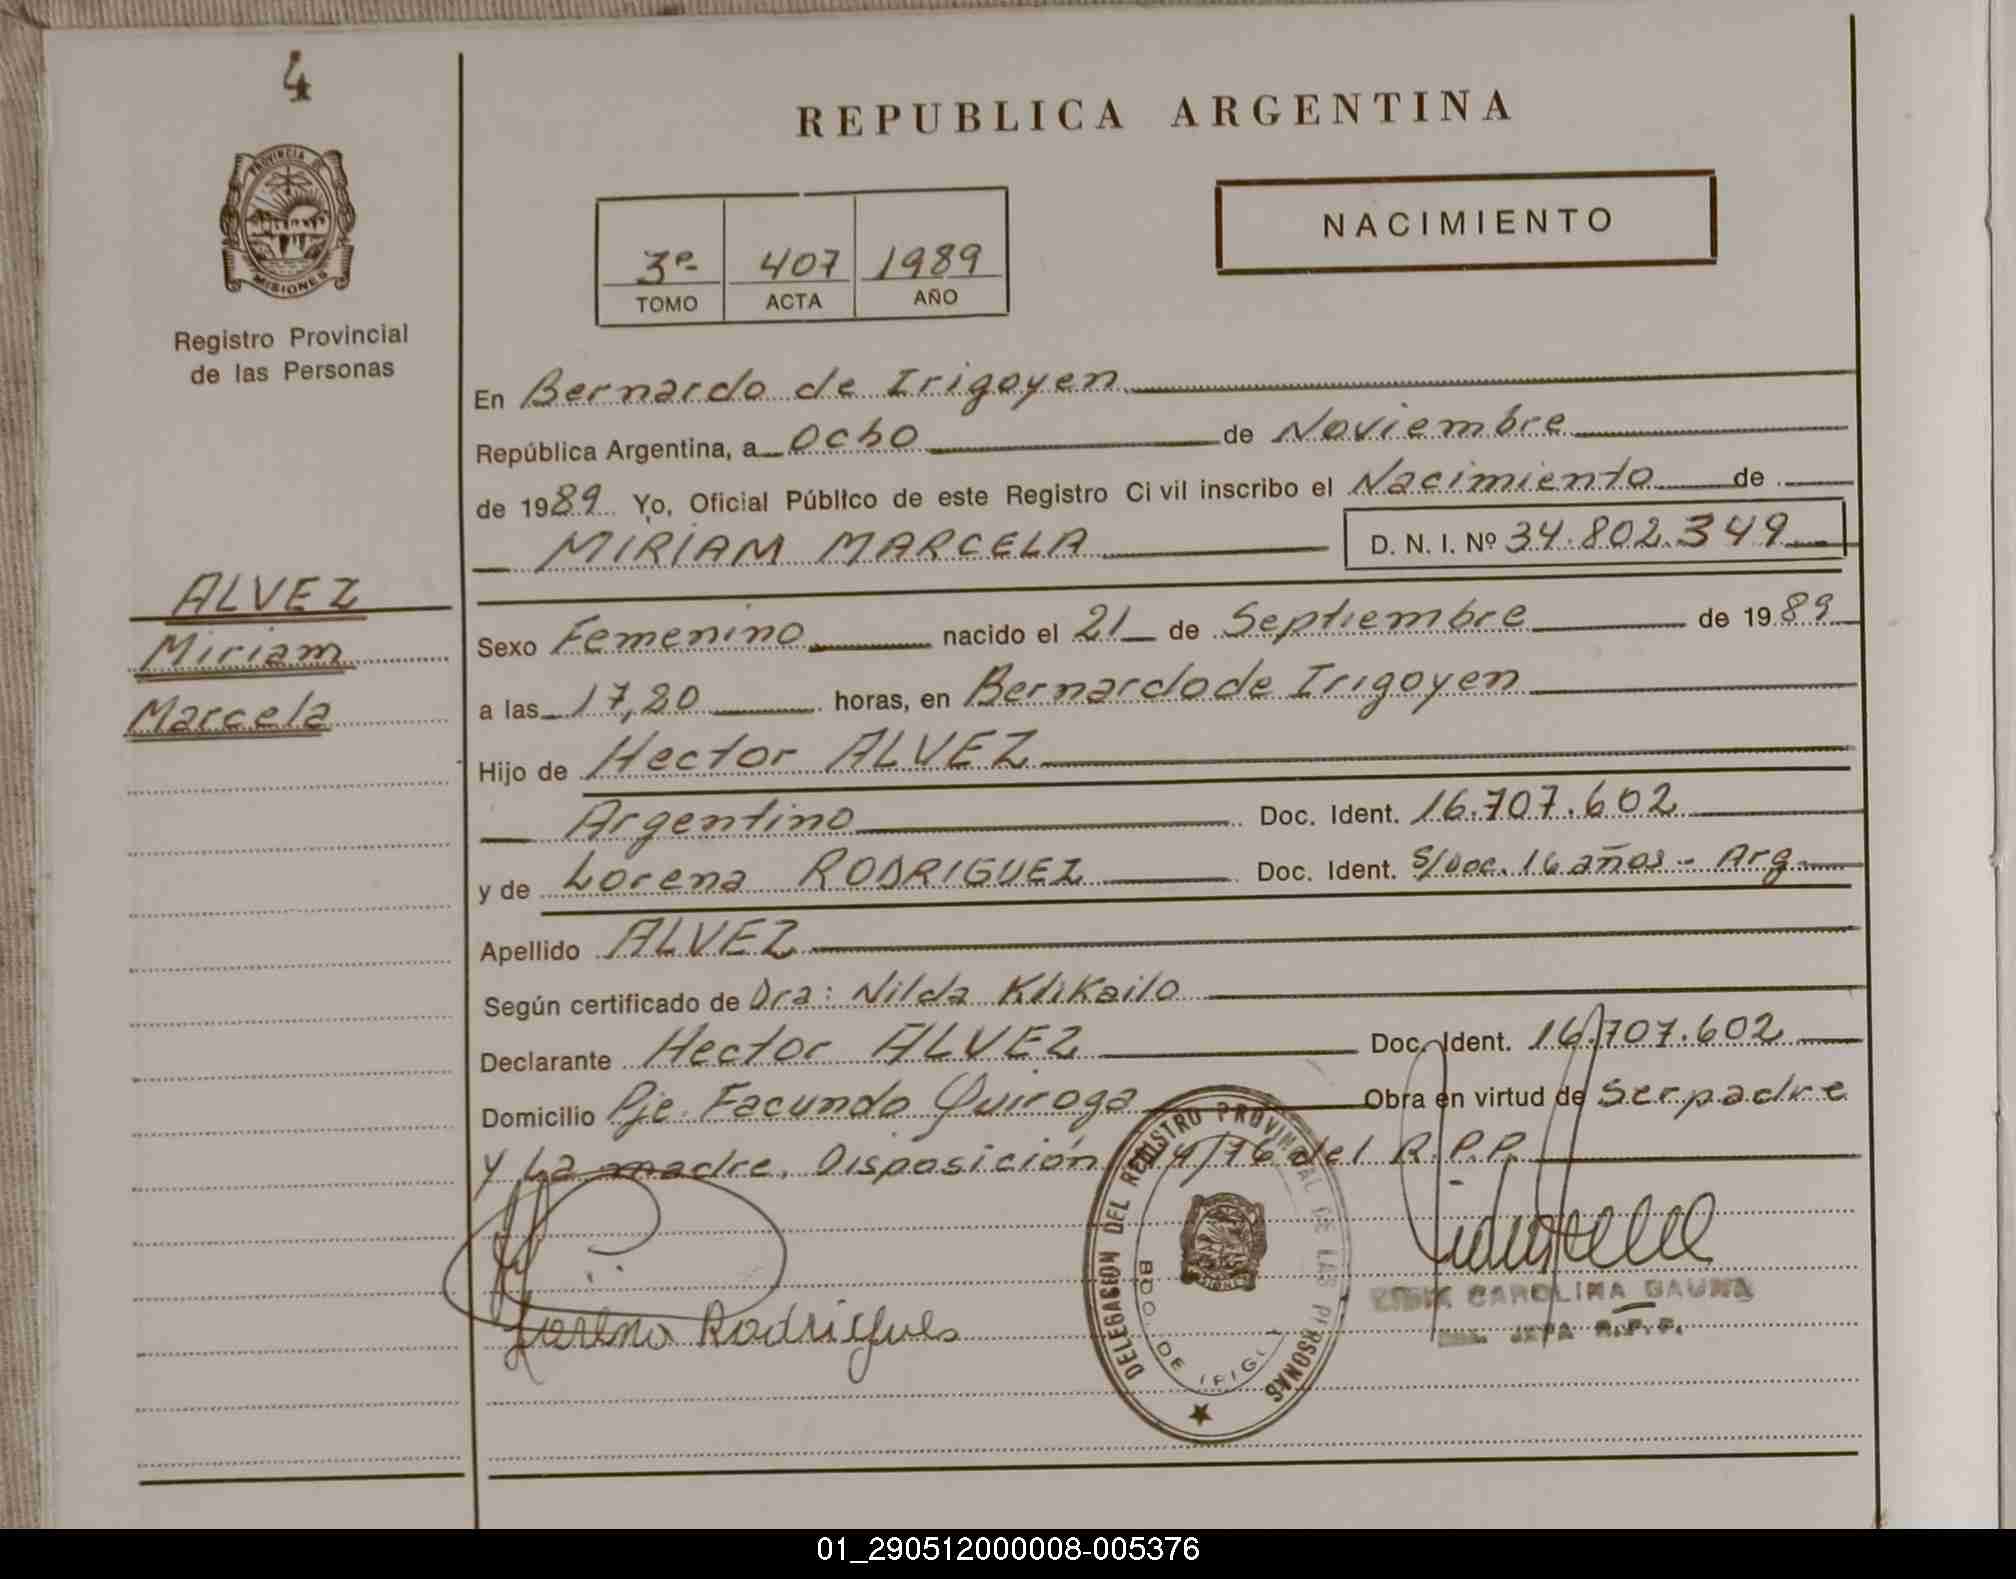 4
REPUBLICA ARGENTINA
PROVINCIA
MISIONES
Registro Provincial
de las Personas
3º 407 1989
TOMO ACTA AÑO
NACIMIENTO
En Bernardo de Irigoyen
República Argentina, a Ocho de Noviembre
de 1989 Yo, Oficial Público de este Registro Civil inscribo el Nacimiento de
MIRIAM MARCELA D. N. I. Nº 34.802.349
ALVEZ
Miriam
Marcela
Sexo Femenino nacido el 21 de Septiembre de 1989
a las 17,20 horas, en Bernardo de Irigoyen
Hijo de Hector ALVEZ
Argentino Doc. Ident. 16.707.602
y de Lorena RODRIGUEZ Doc. Ident. S/Doc. 16 años - Arg
Apellido ALVEZ
Según certificado de Dra: Nilda
Declarante Hector ALVEZ Doc. Ident. 16.707.602
Domicilio Pje. Facundo Quiroga Obra en virtud de ser padre
y La madre. Disposición /76 del R.P.P.
DELEGACION DEL REGISTRO PROVINCIAL DE LAS PERSONAS
BDO. DE IRIG
Rodrigues
CAROLINA GAUNA
JEFA R.P.P.
01_290512000008-005376